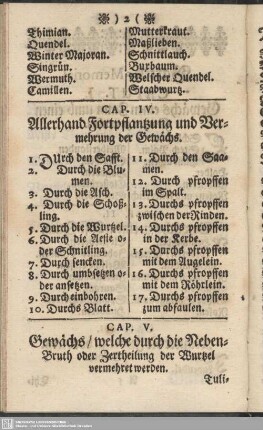 ❀ ) 2 ( ❀
Thimian.
Quendel.
Winter Majoran.
Singrün.
Wermuth.
Camillen.
Mutterkraut.
Maßlieben.
Schnittlauch.
Buxbaum.
Welscher Quendel.
Staadwurtz.
CAP. IV.
Allerhand Fortpflantzung und Ver-
mehrung der Gewächs.
1. Durch den Safft.
2. Durch die Blu-
men.
3. Durch die Äsch.
4. Durch die Schoß-
ling.
5. Durch die Wurtzel.
6. Durch die Aeste o-
der Schnitling.
7. Durch sencken.
8. Durch umbsetzen o-
der ansetzen.
9. Durch einbohren.
10. Durchs Blatt.
11. Durch den Saa-
men.
12. Durch pfropffen
im Spalt.
13. Durchs pfropffen
zwischen der Rinden.
14. Durchs pfropffen
in der Kerbe.
15. Durchs pfropffen
mit dem Augelein.
16. Durchs pfropffen
mit dem Röhrlein.
17. Durchs pfropffen
zum abfaulen.
CAP. V.
Gewächs / welche durch die Neben-
Bruth oder Zertheilung der Wurtzel
vermehret werden.
Tuli-